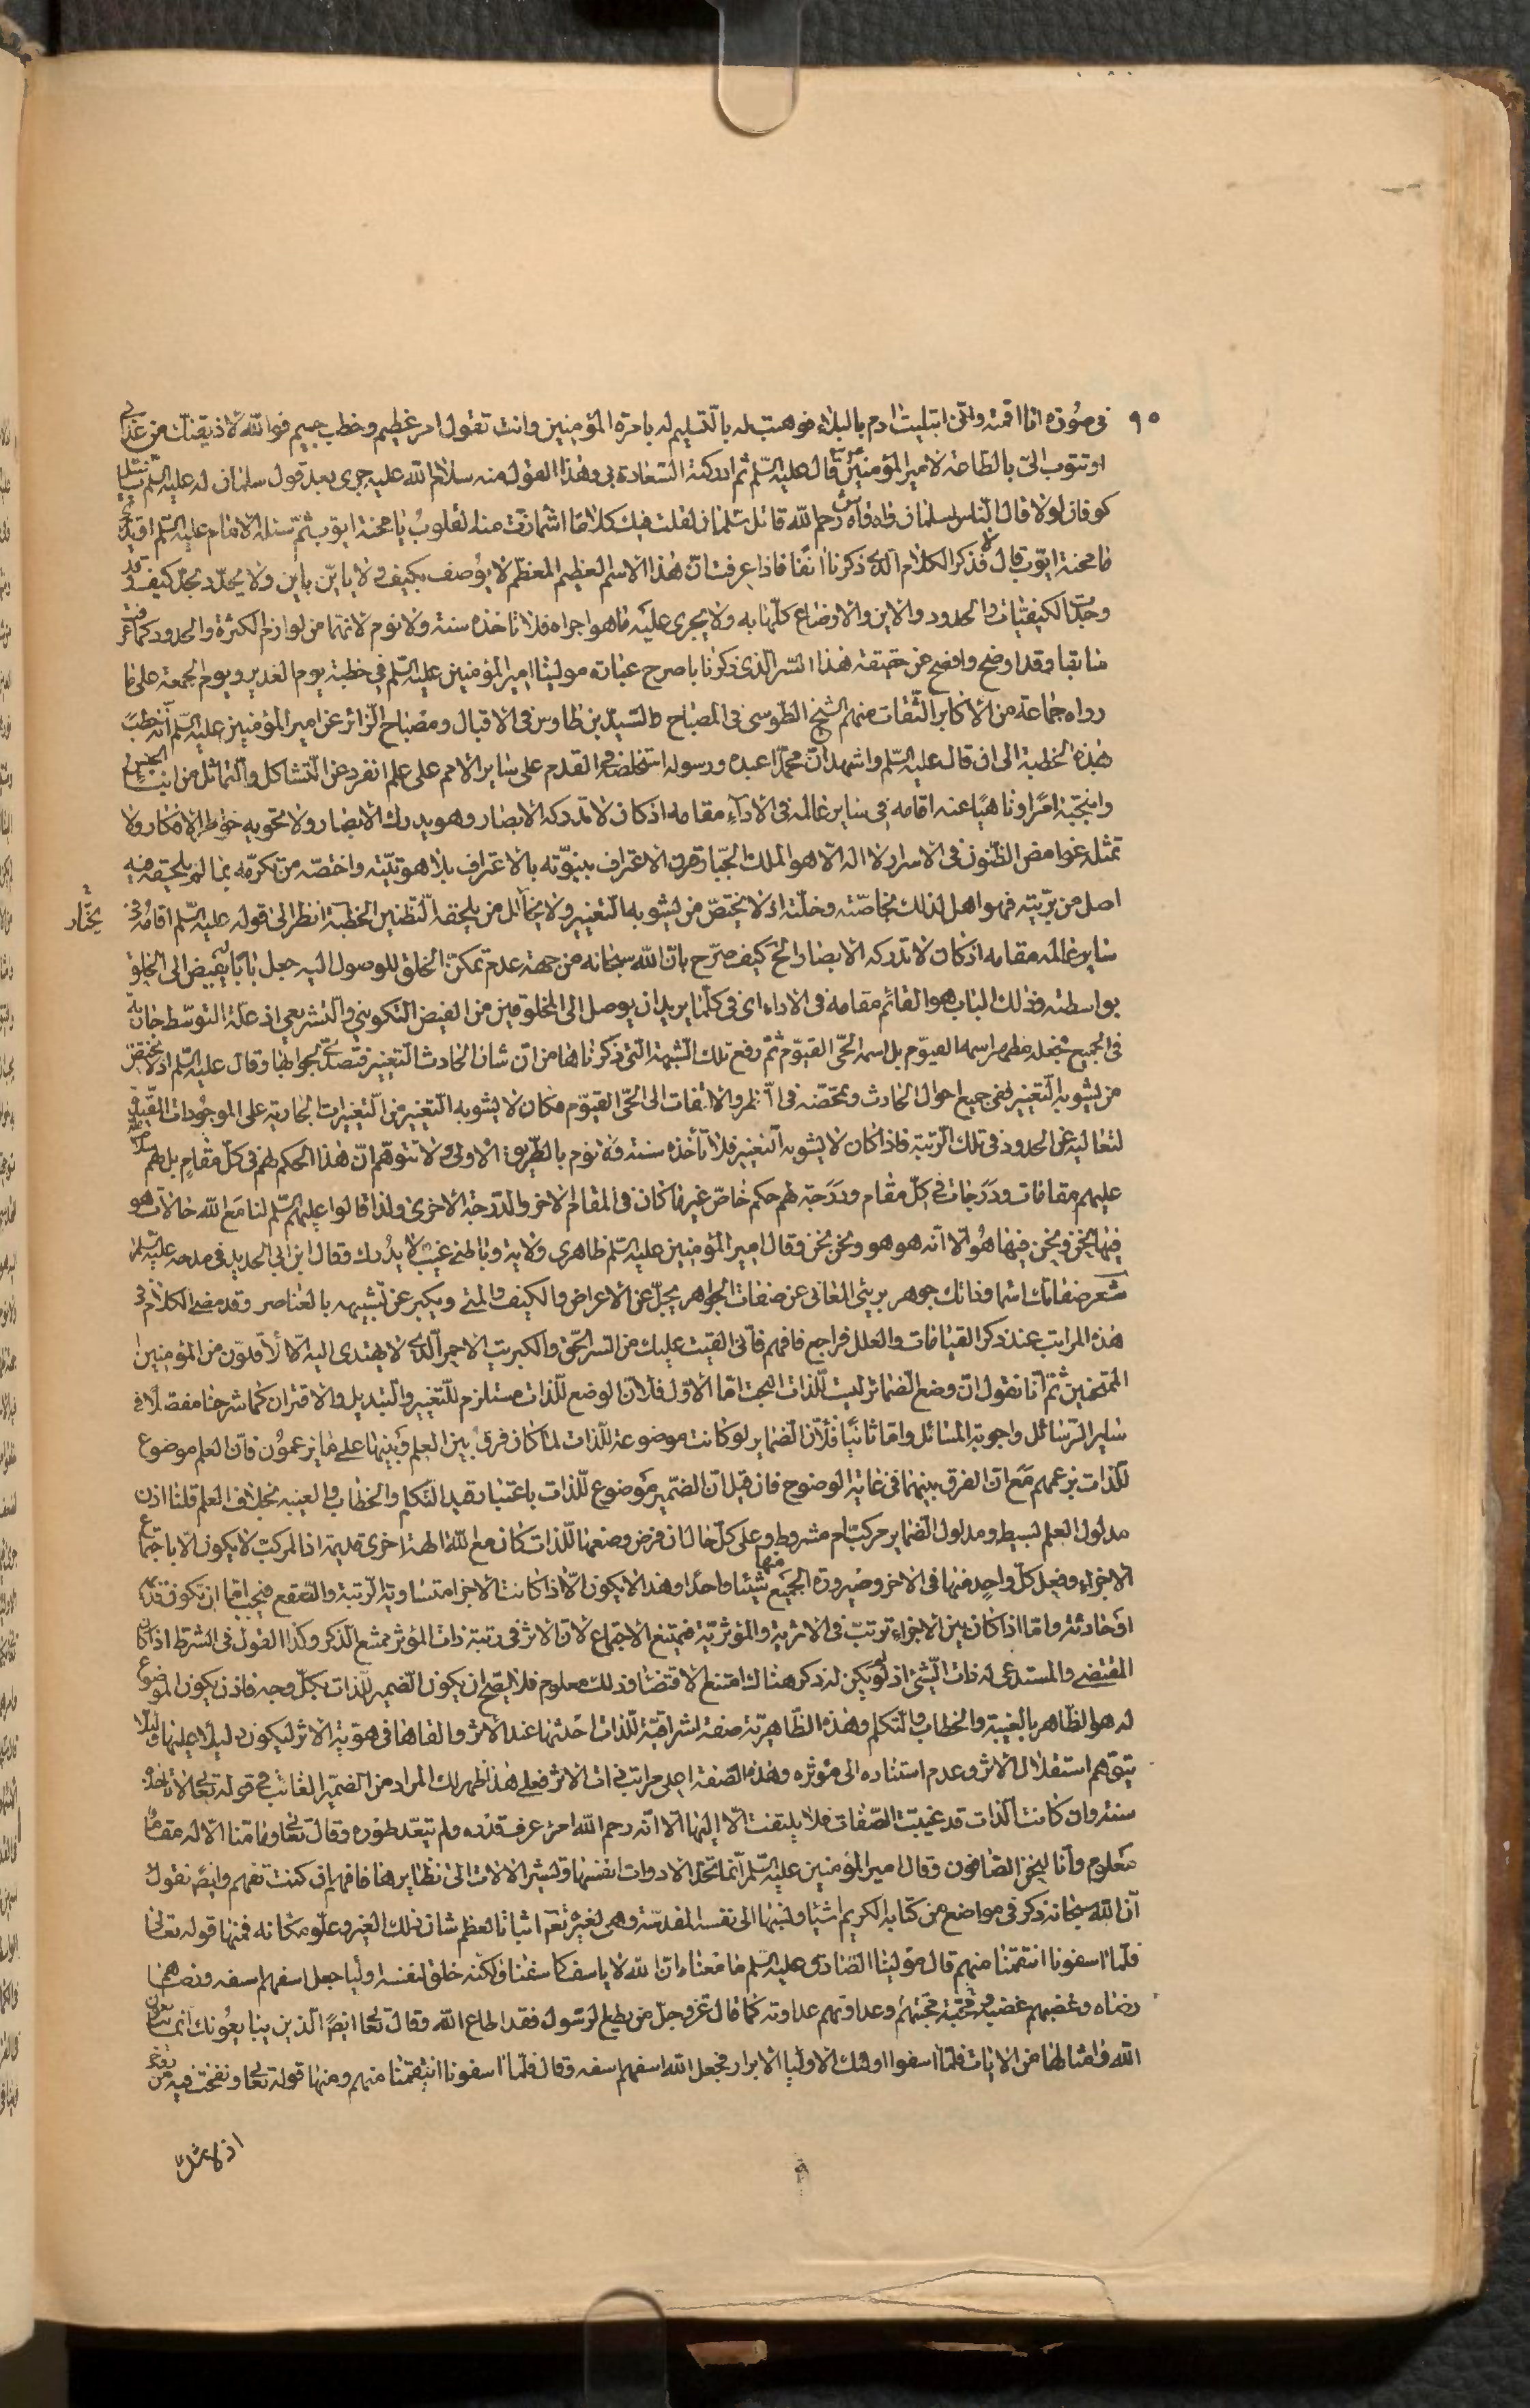 ٩٥ في صورة انا اقمته واني ابتليت ادم بالبلاء فوهبت له بالتسليم له بامرة المؤمنين وانت تقول امر عظيم وخطب جسيم فوالله لاذيقنك من عذابي
او تتوب الي بالطاعة لامير المؤمنين ع قال عليه السلم ثم ادركته السعادة بي وهذا القول منه سلام الله عليه جرى بعد قول سلمان له عليه السلم يا قتيل
كوفان لولا قال الناس لسلمان واه واه رحم الله قاتل سلمان لقلت فيك كلاما اشمازت منه القلوب يا محنة ايوب ثم سئله الامام عليه السلم اتدري
ما محنة ايوب قال لا فذكر الكلام الذي ذكرناه انفا فاذا عرفت ان هذا الاسم العظيم المعظم لا يوصف بكيف ولا يأين باين ولا يحدد بحد كيف وقد
وجد الكيفيات والحدود والاين والاوضاع كلها به ولا يجري عليه ما هو اجراه فلا تاخذه سنة ولا نوم لانهما من لوازم الكثرة والحدود كما عرفت
سابقا وقد اوضح وافصح عن حقيقة هذا السر الذي ذكرنا باصرح عبارة مولينا امير المؤمنين عليه السلم في خطبة يوم الغدير ويوم الجمعة على ما
رواه جماعة من الاكابر الثقات منهم الشيخ الطوسي في المصباح والسيد بن طاوس في الاقبال ومصباح الزائر عن امير المؤمنين عليه السلم انه خطب
هذه الخطبة الى ان قال عليه السلم واشهد ان محمدا عبده ورسوله استخلصه في القدم على ساير الامم على علم انفرد عن التشاكل والتماثل من ابناء الجنس
وانتجبه امرا وناهيا عنه اقامه في ساير عالمه في الاداء مقامه اذ كان لا تدركه الابصار وهو يدرك الابصار ولا تحويه خواطر الافكار ولا
تمثله غوامض الظنون في الاسرار لا اله الا هو الملك الجبار قرن الاعتراف بنبوته بالاعتراف بلاهوتيته واختصه من تكرمه بما لم يلحقه فيه
احد من بريته فهو اهل لذلك بخاصته وخلته اذ لا يختص من يشوبه التغيير ولا يخالل من يلحقه التظنين الخطبة انظر الى قوله عليه السلم اقامه في
يختار
ساير عالمه مقامه اذ كان لا تدركه الابصار الخ كيف صرح بان الله سبحانه من جهة عدم تمكن الخلق للوصول اليه جعل بابا يفيض الى الخلق
بواسطته وذلك الباب هو القائم مقامه في الاداء اي في كلما يريد ان يوصل الى المخلوقين من الفيض التكويني والتشريعي اذ علة التوسط جارية
في الجميع فجعله مظهر اسمه القيوم بل اسمه الحي القيوم ثم رفع تلك الشبهة التي ذكرناها من ان شان الحادث التغيير فتصدى لجوابها وقال عليه السلم اذ لا يختص
من يشوبه التغيير ففي جميع احوال الحادث وتمحضه في النظر والالتفات الى الحي القيوم فكان لا يشوبه التغيير من التغييرات الجارية على الموجودات المقيدة
لتعاليه عن الحدود في تلك الرتبة فاذا كان لا يشوبه التغيير فلا تأخذه سنة ولا نوم بالطريق الاولى ولا تتوهم ان هذا الحكم لهم في كل مقام بل لهم سلام الله
عليهم مقامات ودرجات في كل مقام ودرجة لهم حكم خاص غير ما كان في المقام الاخر والدرجة الاخرى ولذا قالوا عليهم السلم لنا مع الله حالات هو
فيها نحن ونحن فيها هو الا انه هو هو ونحن نحن وقال امير المؤمنين عليه السلم ظاهري ولاية وباطني غيب لا يدرك وقال ابن ابي الحديد في مدحه عليه السلم
شعر صفاتك اسماء وذاتك جوهر بريئ المعاني عن صفات الجواهر يجل عن الاعراض والكيف والمتى ويكبر عن تشبيهه بالعناصر وقد مضى الكلام في
هذه المراتب عند ذكر القيامات والعلل فراجع فافهم فاني القيت عليك من السر الحق والكبريت الاحمر الذي لا يهتدي اليه الا الاقلون من المؤمنين
الممتحنين ثم انا نقول ان وضع الضمائر ليست للذات البحت اما الاول فلان الوضع للذات مستلزم للتغيير والتبديل والاقتران كما شرحنا مفصلا في
ساير الرسائل واجوبة المسائل واما ثانيا فلان الضماير لو كانت موضوعة للذات لما كان فرق بين العلم وبينها على ما يزعمون فان العلم موضوع
للذات بزعمهم مع ان الفرق بينهما في غاية الوضوح فان قيل ان الضمير موضوع للذات باعتبار قيد التكلم والخطاب والغيبة بخلاف العلم قلنا اذن
مدلول العلم بسيط ومدلول الضماير مركب ام مشروط وعلى كل حال ان فرض وضعها للذات كان مع الله الهة اخرى قديمة اذا المركب لا يكون الا باجتماع
الاجزاء وفعل كل واحد منها في الاخر وصيرورة الجميع منها شيئا واحدا وهذا لا يكون الا اذا كانت الاجزاء متساوية الرتبة والصقع فيجب اما ان تكون قديمة
او حادثة واما اذا كان بين الاجزاء ترتب في الاثرية والمؤثرية فيمتنع الاجتماع لان الاثر في رتبة ذات المؤثر ممتنع الذكر وكذا القول في الشرط اذا كان
المقتضي والمستدعي له ذات الشئ اذ لو لم يكن له ذكر هناك امتنع الاقتضاء وذلك معلوم فلا يصح ان يكون الضمير للذات بكل وجه فاذن يكون الموضوع
له هو الظاهر بالغيبة والخطاب والتكلم وهذه الظاهرية صفة اشراقية للذات احدثها عند الاثر والقاها في هوية الاثر ليكون دليلا عليها ولئلا
يتوهم استقلال الاثر وعدم استناده الى مؤثره وهذه الصفة اعلى مراتب ذات الاثر فعلى هذا ظهر لك المراد من الضمير الغائب في قوله تعالى لا تأخذه
سنة وان كانت الذات قد غيبت الصفات فلا يلتفت الا اليها الا انه رحم الله امرء عرف قدره ولم يتعد طوره وقال تعالى وما منا الا له مقام
معلوم وانا لنحن الصافون وقال امير المؤمنين عليه السلم انما تحد الادوات انفسها وتشير الالات الى نظايرها فافهم ان كنت تفهم وايضا نقول
ان الله سبحانه ذكر في مواضع من كتابه الكريم اشياء ونسبها الى نفسه المقدسة وهي لغيره تعالى اثباتا لعظم شان ذلك الغير وعلو مكانه فمنها قوله تعالى
فلما اسفونا انتقمنا منهم قال مولينا الصادق عليه السلم ما معناه ان الله لا ياسف كاسفنا ولكنه خلق لنفسه اولياء جعل اسفهم اسفه ورضاهم
رضاه وغضبهم غضبه ومحبته محبتهم وعداوتهم عداوته كما قال عز وجل من يطع الرسول فقد اطاع الله وقال تعالى ايضا الذين يبايعونك انما يبايعون
الله وامثالها من الايات فلما اسفوا اولئك الاولياء الابرار فجعل الله اسفهم اسفه وقال فلما اسفونا انتقمنا منهم ومنها قوله تعالى ونفخت فيه من روحي